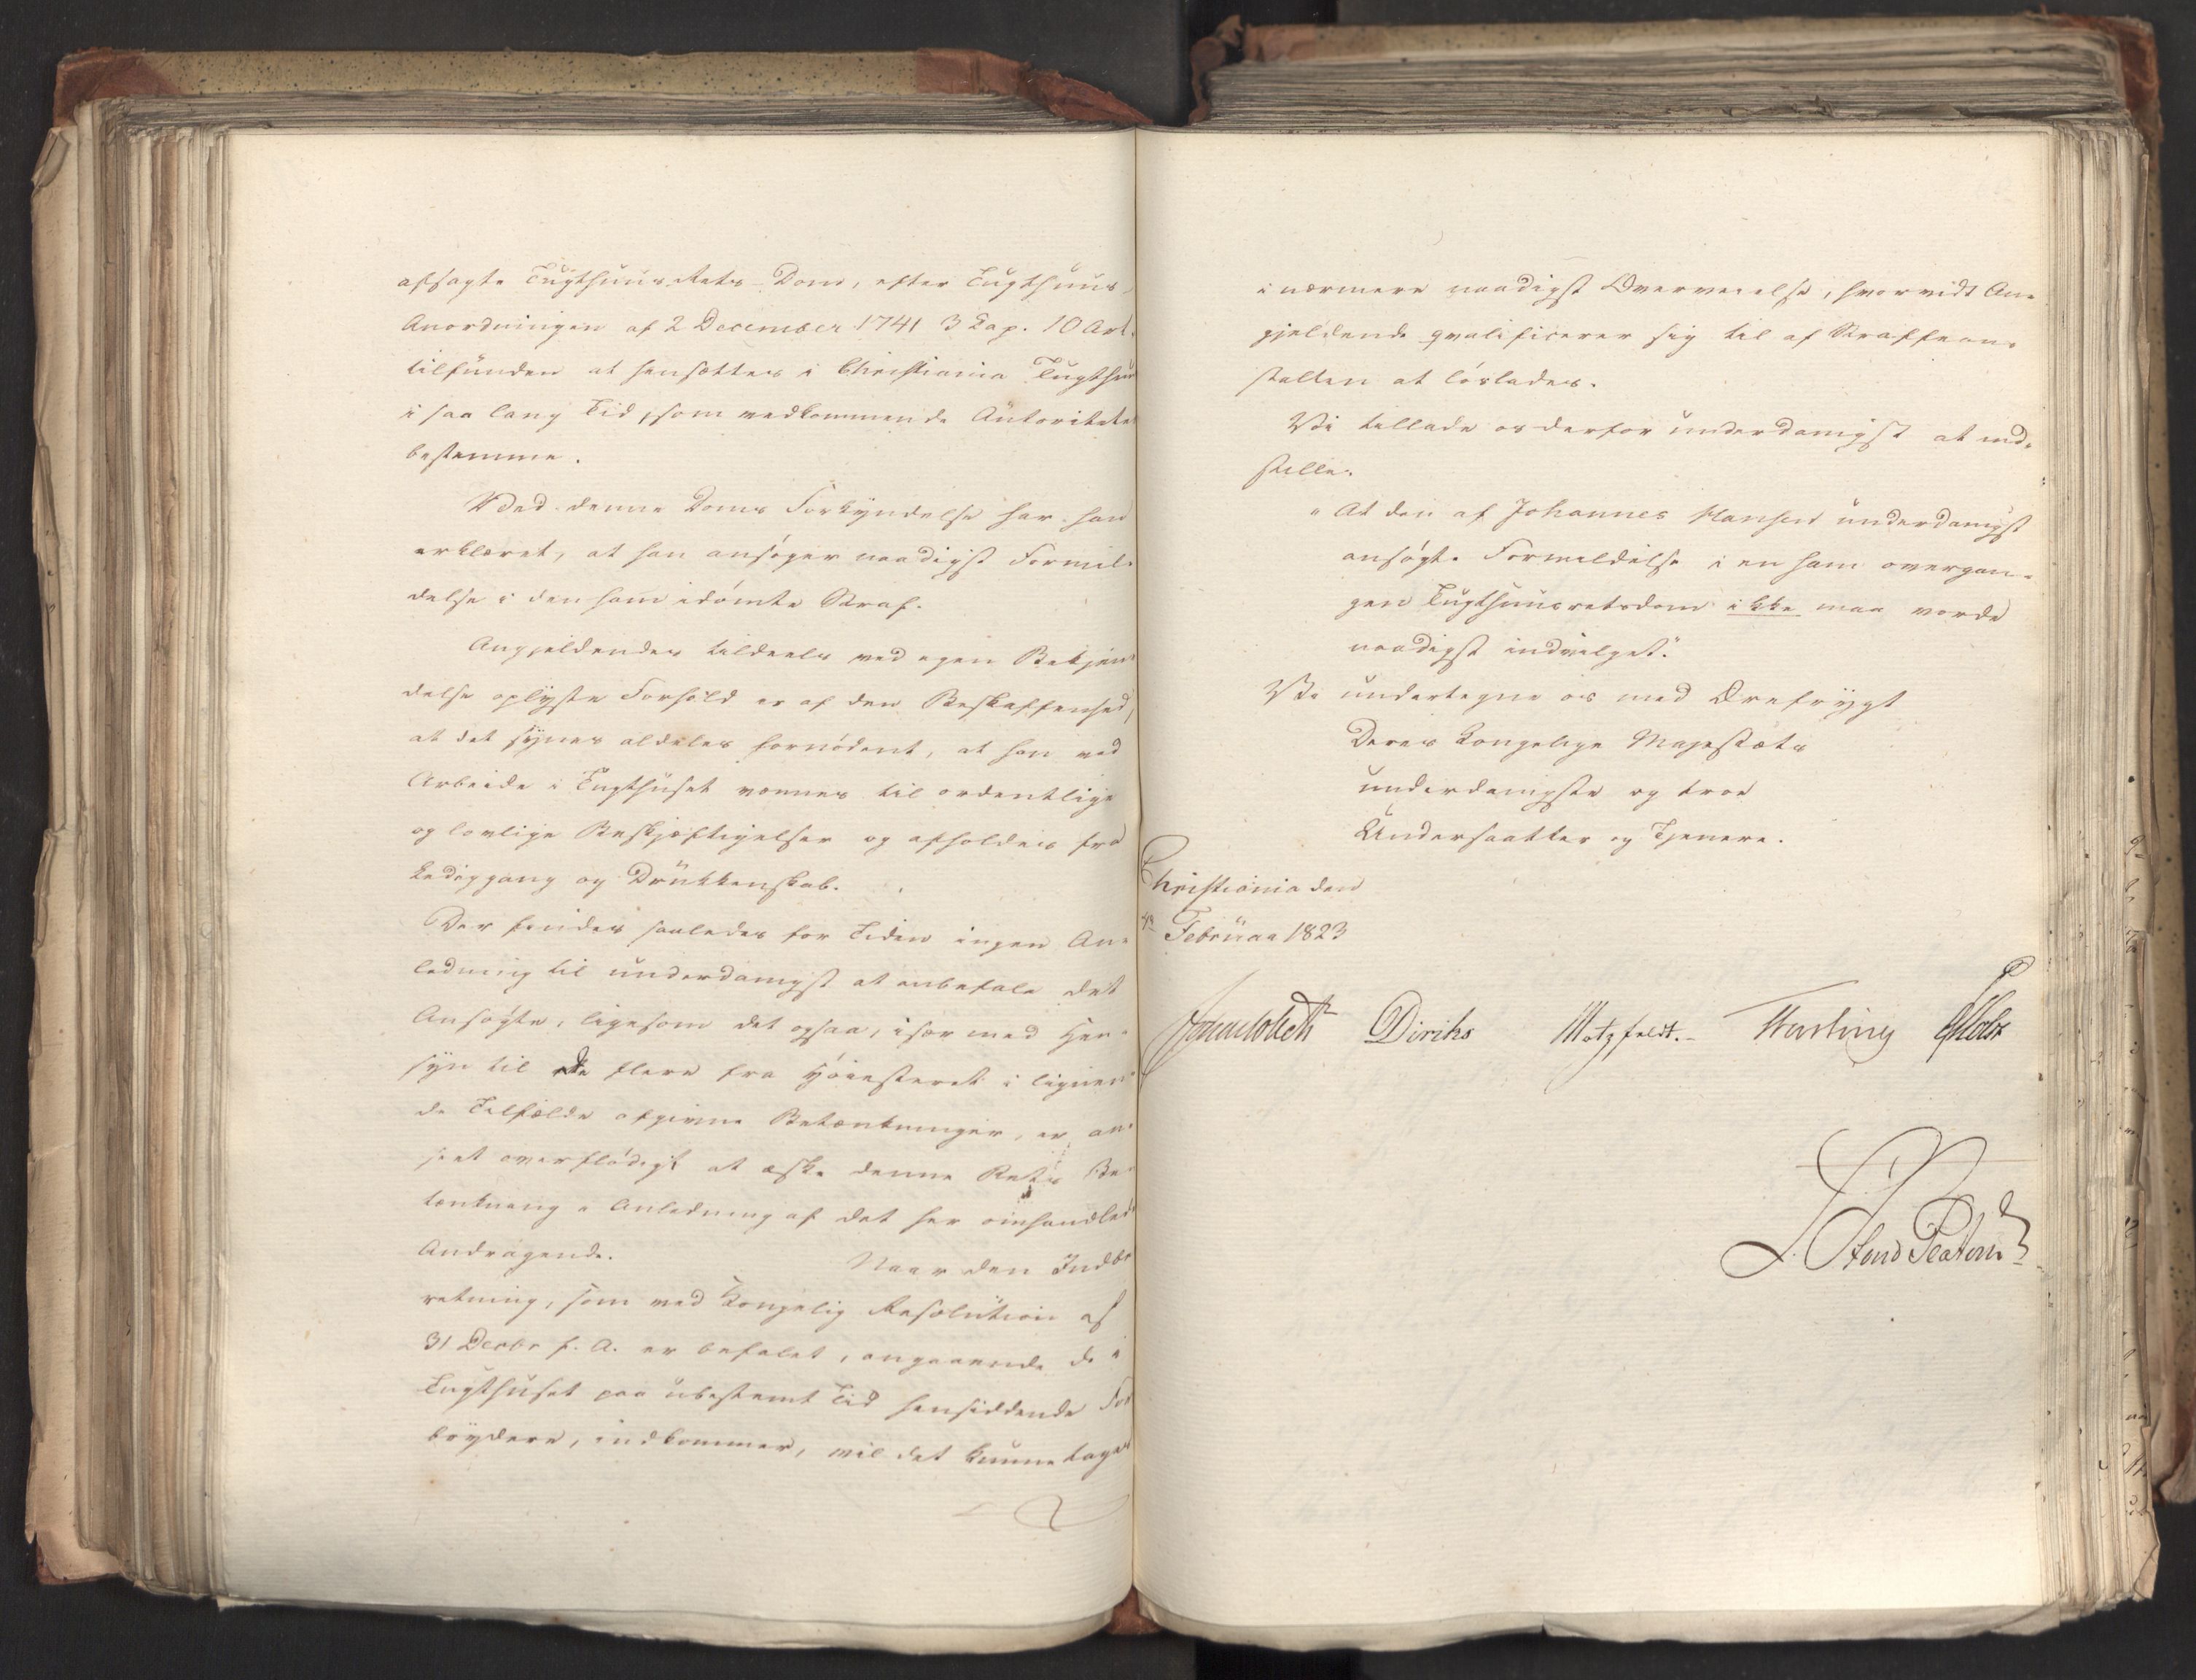 afsagte Tugthuus-Rets-Dom, efter Tugthuus-
Anordningen af 2 December 1741 3 Cap. 10 Art.
tilfunden at hensættes i Christiania Tugthus
i saa lang Tid, som vedkommende Autoriteter
bestemme.
Ved denne Doms Forkyndelse har han
erklæret, at han ansøger naadigst Formil-
delse i den ham idømte Straf.
Angjeldendes tildeels ved egen Bekjen-
delse oplyste Forhold er af den Beskaffenhed,
at det synes aldeles fornødent, at han ved
Arbeide i Tugthuset vænnes til ordentlige
og lovlige Beskjæftigelser og afholdes fra
Lediggang og Drukkenskab.
Der findes saaledes for Tiden ingen An-
ledning til underdanigst at anbefale det
Ansøgte, ligesom det ogsaa, især med Hen-
syn til de flere fra Høiesteret i lignen-
de Tilfælde afgivne Betænkninger, er an-
seet overflødigt at æske denne Rets Be-
tænkning i Anledning af det her omhandlede
Andragende.
Naar den Indbe-
retning, som ved Kongelig Resolution af
31 Decbr f. A. er befalet, angaaende de i
Tugthuset paa ubestemt Tid hensiddende For-
brydere, indkommer, vil det kunne tages
i nærmere naadigst Overveielse, hvorvidt An-
gjeldende qvalificerer sig til af Straffean-
stalten at løslades.
Vi tillade os derfor underdanigst at ind-
stille.
"At den af Johannes Hansen underdanigst
ansøgte Formildelse i en ham overgan-
gen Tugthuusretsdom ikke maa vorde
naadigst indvilget."
Vi undertegne os med Ærefrygt
Deres Kongelige Majestæts
underdanigste og troe
Undersaatter og Tjenere.
Christiania den
4de Februar 1823
Diriks Motzfeldt. Fasting